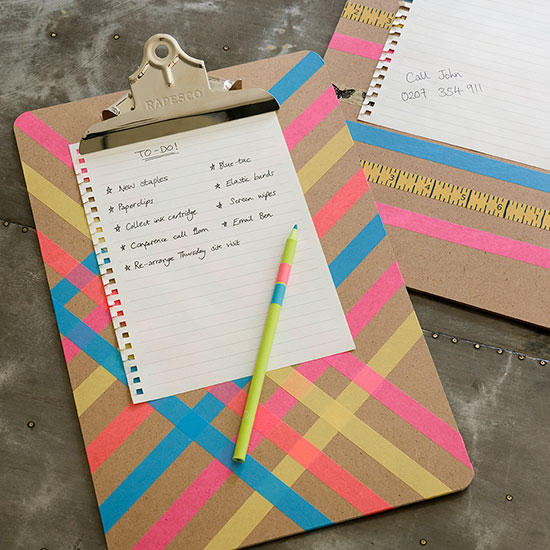 RAPESCO
TO-DO!
☆ New staples
☆ Paperclips
☆ Collect ink cartridge
☆ Conference call 11am
☆ Re-arrange Thursday site visit
☆ Blue-tac
☆ Elastic bands
☆ Screen wipes
☆ Email Ben
Call John
0207 354 911